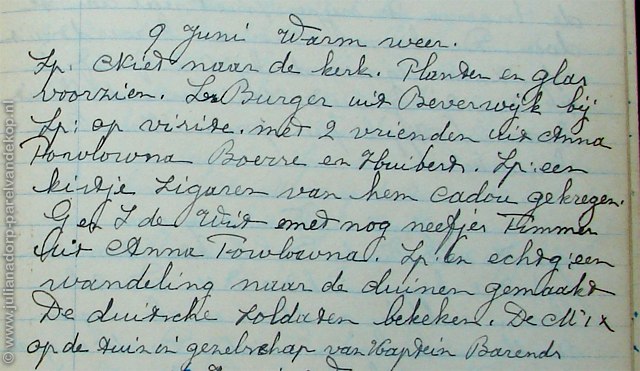 9 Juni Warm weer.
Sp: Niet naar de kerk. Planten en glas
voorzien. Ls Burger uit Beverwijk bij
Sp: op visite. met 2 vrienden uit Anna
Powlowna Boerre en Huibert. Sp: een
kistje sigaren van hem cadou gekregen.
G en S de Wit met nog neefjes Timmer
uit Anna Powlowna. Sp: en echtg: een
wandeling naar de duinen gemaakt
De duitsche soldaten bekeken. De
op de tuin in gezelschap van Kaptein Barends
© www.julianadorp-parelvandekop.nl